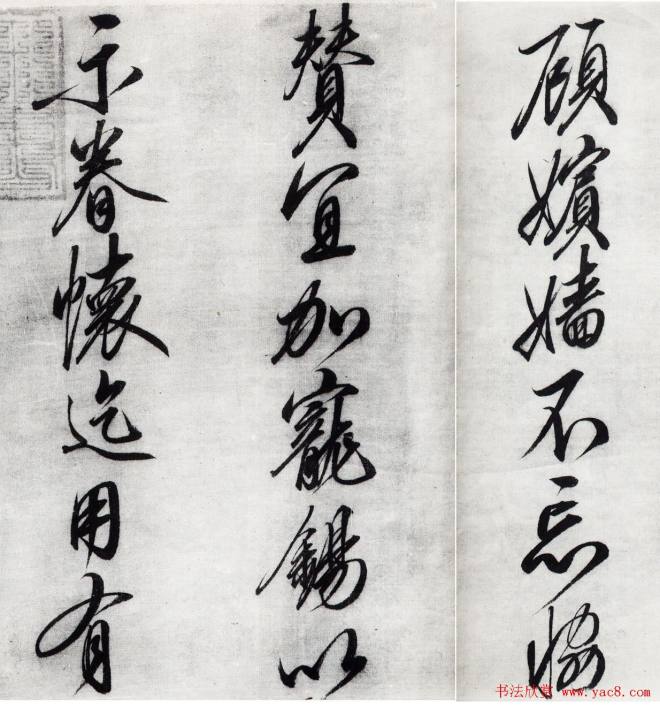 顧嬪嬙不忘恊
賛宜加寵錫以
示眷懷迄用有
书法欣赏 www.yac8.com